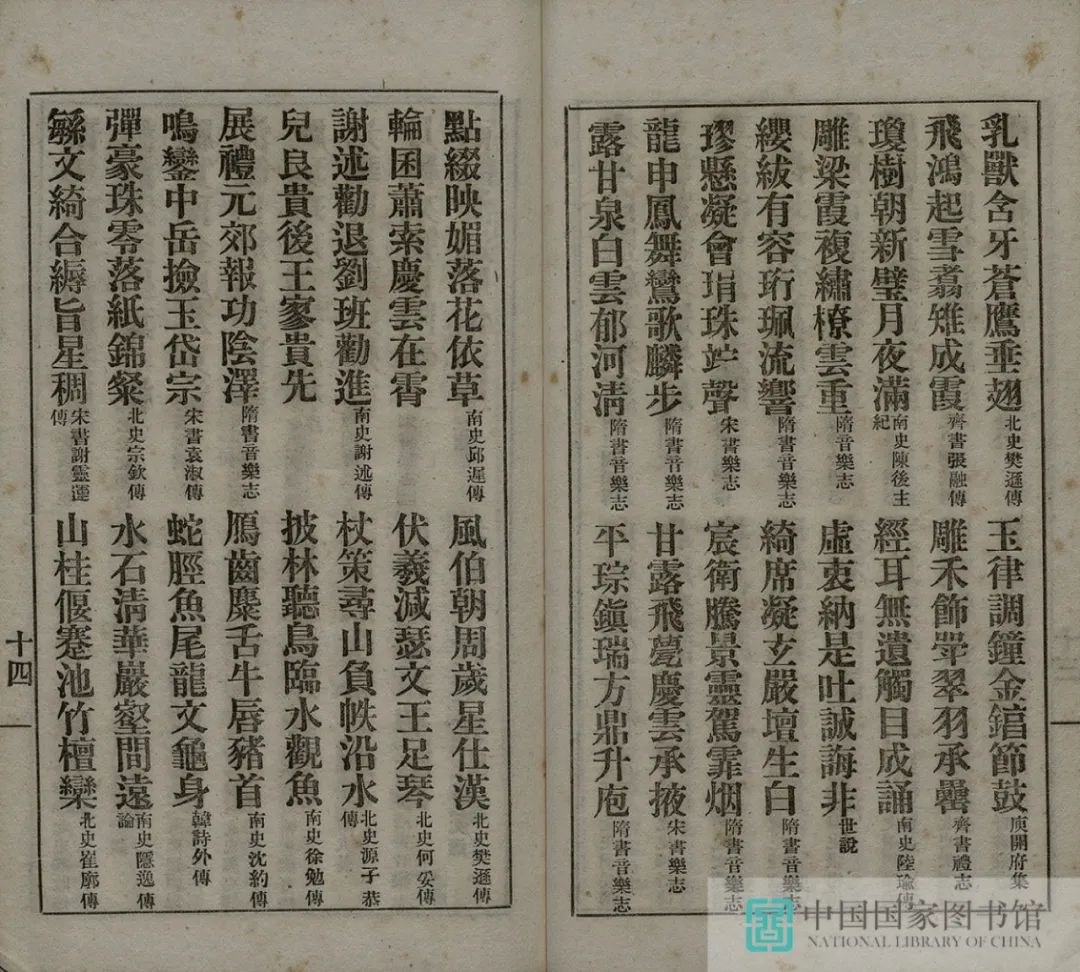 乳獸含牙蒼鷹垂翅北史樊遜傳
玉律調鐘金錧節鼓庾開府集
飛鴻起雪翥雉成霞齊書張融傳
雕禾飾斝翠羽承罍齊書禮志
瓊樹朝新璧月夜滿南史陳後主紀
經耳無遺觸目成誦南史陸瑜傳
雕梁霞複繡橑雲重隋音樂志
虛衷納是吐誠誨非世說
纓紱有容珩珮流響隋書音樂志
綺席凝玄嚴壇生白隋書音樂志
璆懸凝會珠聲宋書樂志
宸衛騰景靈駕霏烟隋書音樂志
龍申鳳舞鸞歌麟步隋書音樂志
甘露飛甍慶雲承掖宋書樂志
露甘泉白雲郁河清隋書音樂志
平琮鎮瑞方鼎升庖隋書音樂志
點綴映媚落花依草南史邱遲傳
風伯朝周歲星仕漢北史樊遜傳
輪囷蕭索慶雲在霄
伏羲減瑟文王足琴北史何妥傳
謝述勸退劉班勸進南史謝述傳
杖策尋山負帙沿水北史源子恭傳
兒良貴後王寥貴先
披林聽鳥臨水觀魚南史徐勉傳
展禮元郊報功陰澤隋書音樂志
鴈齒麋舌牛唇豬首南史沈約傳
鳴鑾中岳撿玉岱宗宋書袁淑傳
蛇脛魚尾龍文龜身韓詩外傳
彈豪珠零落紙錦粲北史宗欽傳
水石清華巖壑間遠南史隱逸傳論
緐文綺合縟旨星稠宋書謝靈運傳
山桂偃蹇池竹檀欒北史崔廓傳
十四
中国国家图书馆
NATIONAL LIBRARY OF CHINA